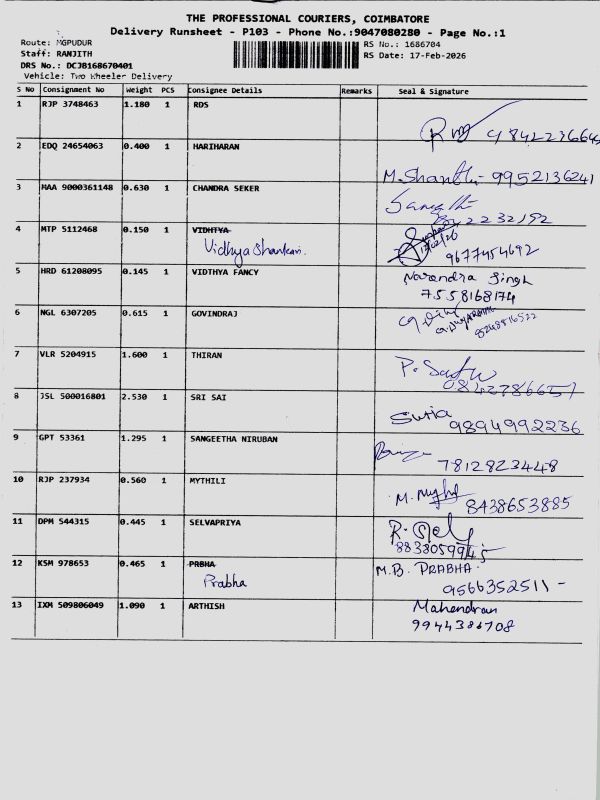 THE PROFESSIONAL COURIERS, COIMBATORE
Delivery Runsheet - P103 - Phone No.:9047080280 - Page No.:1
Route: MGPUDUR
RS No.: 1686704
Staff: RANJITH
RS Date: 17-Feb-2026
DRS No.: DCJB168670401
Vehicle: Two Wheeler Delivery
S No Consignment No Weight PCS Consignee Details Remarks Seal & Signature
1 RJP 3748463 1.180 1 RDS
2 EDQ 24654063 0.400 1 HARIHARAN
M. Shanthi - 9952136241
3 MAA 9000361148 0.630 1 CHANDRA SEKER
Sangeetha
4 MTP 5112468 0.150 1 VIDHTYA
Vidhya Shankari.
17/02/26
9677454692
5 HRD 61208095 0.145 1 VIDTHYA FANCY
Narendra Singh
7558168174
6 NGL 6307205 0.615 1 GOVINDRAJ
7 VLR 5204915 1.600 1 THIRAN
8 JSL 500016801 2.530 1 SRI SAI
Suria
9894992236
9 GPT 53361 1.295 1 SANGEETHA NIRUBAN
7812823448
10 RJP 237934 0.560 1 MYTHILI
8438653885
11 DPM 544315 0.445 1 SELVAPRIYA
12 KSM 978653 0.465 1 PRBHA
Prabha
M.B. PRABHA.
9566352511 -
13 IXM 509806049 1.090 1 ARTHISH
Mahendran
9944386708